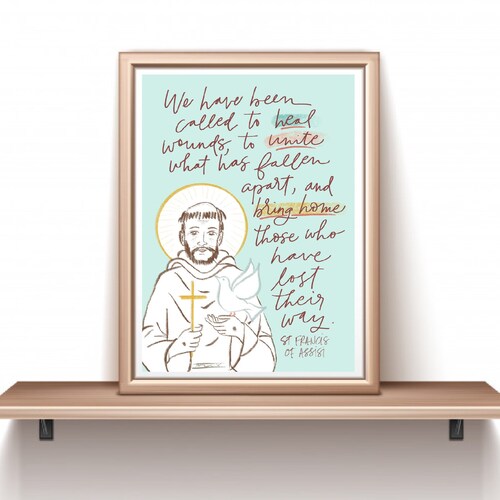 We have been
called to heal
wounds, to unite
what has fallen
apart, and
bring home
those who
have
lost
their
way.
ST FRANCIS
OF ASSISI